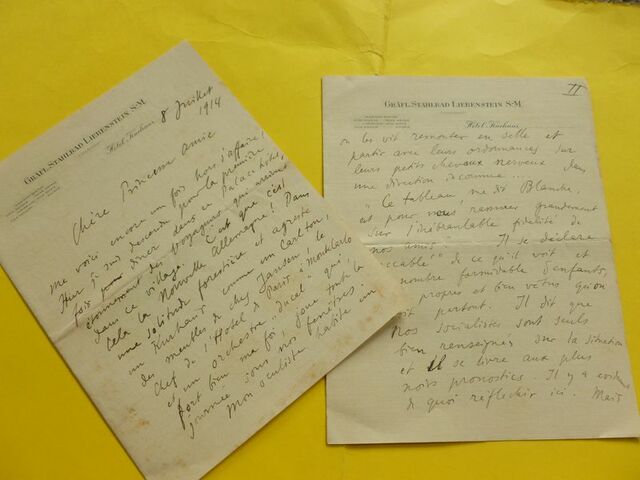 GRÄFL. STAHLBAD LIEBENSTEIN S-M.
Hôtel Kurhaus
8 Juillet
1914
Chère Princesse Amie
me voici encore une fois hors d'affaire!
Hier je suis descendu pour la première
fois pour diner dans ce Palace hotel,
étonnement des voyageurs qui arrivent
dans ce village. C'est que c'est
cela la Nouvelle Allemagne! Dans
une solitude forestière et agreste
un Kurhaus comme un Carlton,
des meubles de chez Jansen, le
chef de l'Hotel de Paris à Monte Carlo
et un orchestre "ducal" qui,
fort bien ma foi, joue toute la
journée sous nos fenêtres.
Mon oculiste habite un
II
GRÄFL. STAHLBAD LIEBENSTEIN S-M.
Hôtel Kurhaus
on les voit remonter en selle et
partir avec leurs ordonnances sur
leurs petits chevaux nerveux dans
une direction inconnue...
"le tableau, me dit Blanche,
est pour vous rassurer grandement
sur l'inébranlable fidélité de
nos amis". Il se déclare
de ce qu'il voit et
nombre formidable d'enfants,
propres et bien vêtus qu'on
voit partout. Il dit que
nos socialistes sont seuls
bien renseignés sur la situation
et Il se livre aux plus
noirs pronostics. Il y a
de quoi réfléchir ici. Mais